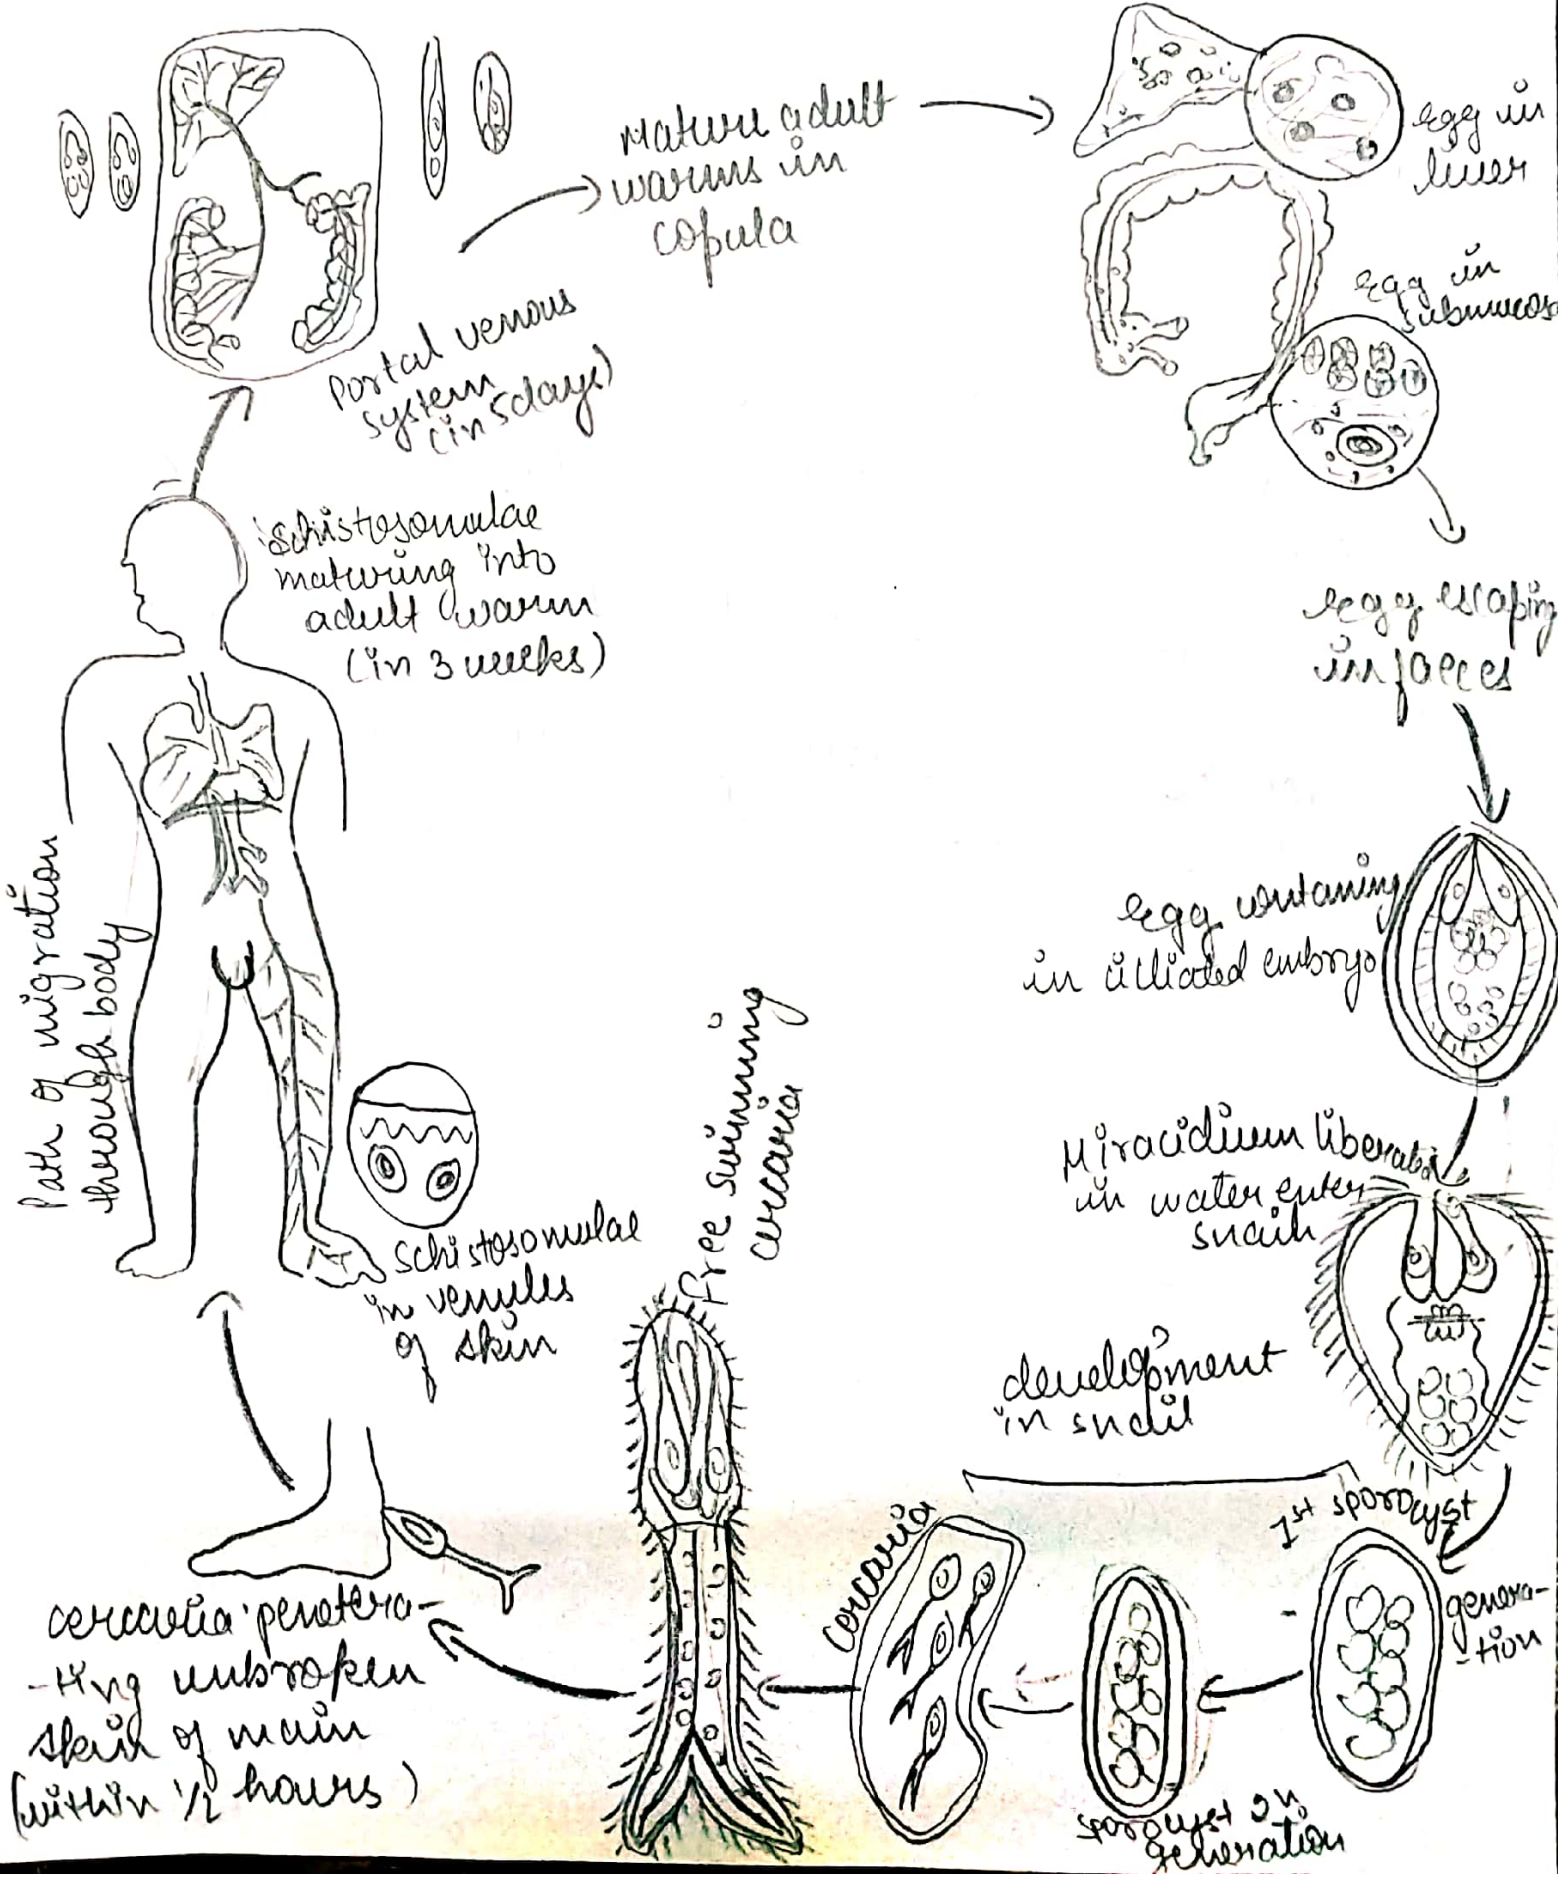 Mature adult
warms in
copula
egg in
liver
egg in
submucosa
Portal venous
system
(in 5 days)
schistosomulae
maturing into
adult warm
(in 3 weeks)
egg escaping
in faeces
Path of migration
through body
egg containing
in cilliated embryo
Miracidium liberated
in water enter
snail
free swimming
cercaria
schistosomulae
in venules
of skin
development
in snail
1st sporocyst
genera-
-tion
cercaria
cercaria penetera-
-ting unbroken
skin of main
(within 1/2 hours)
sporocyst 2n
generation